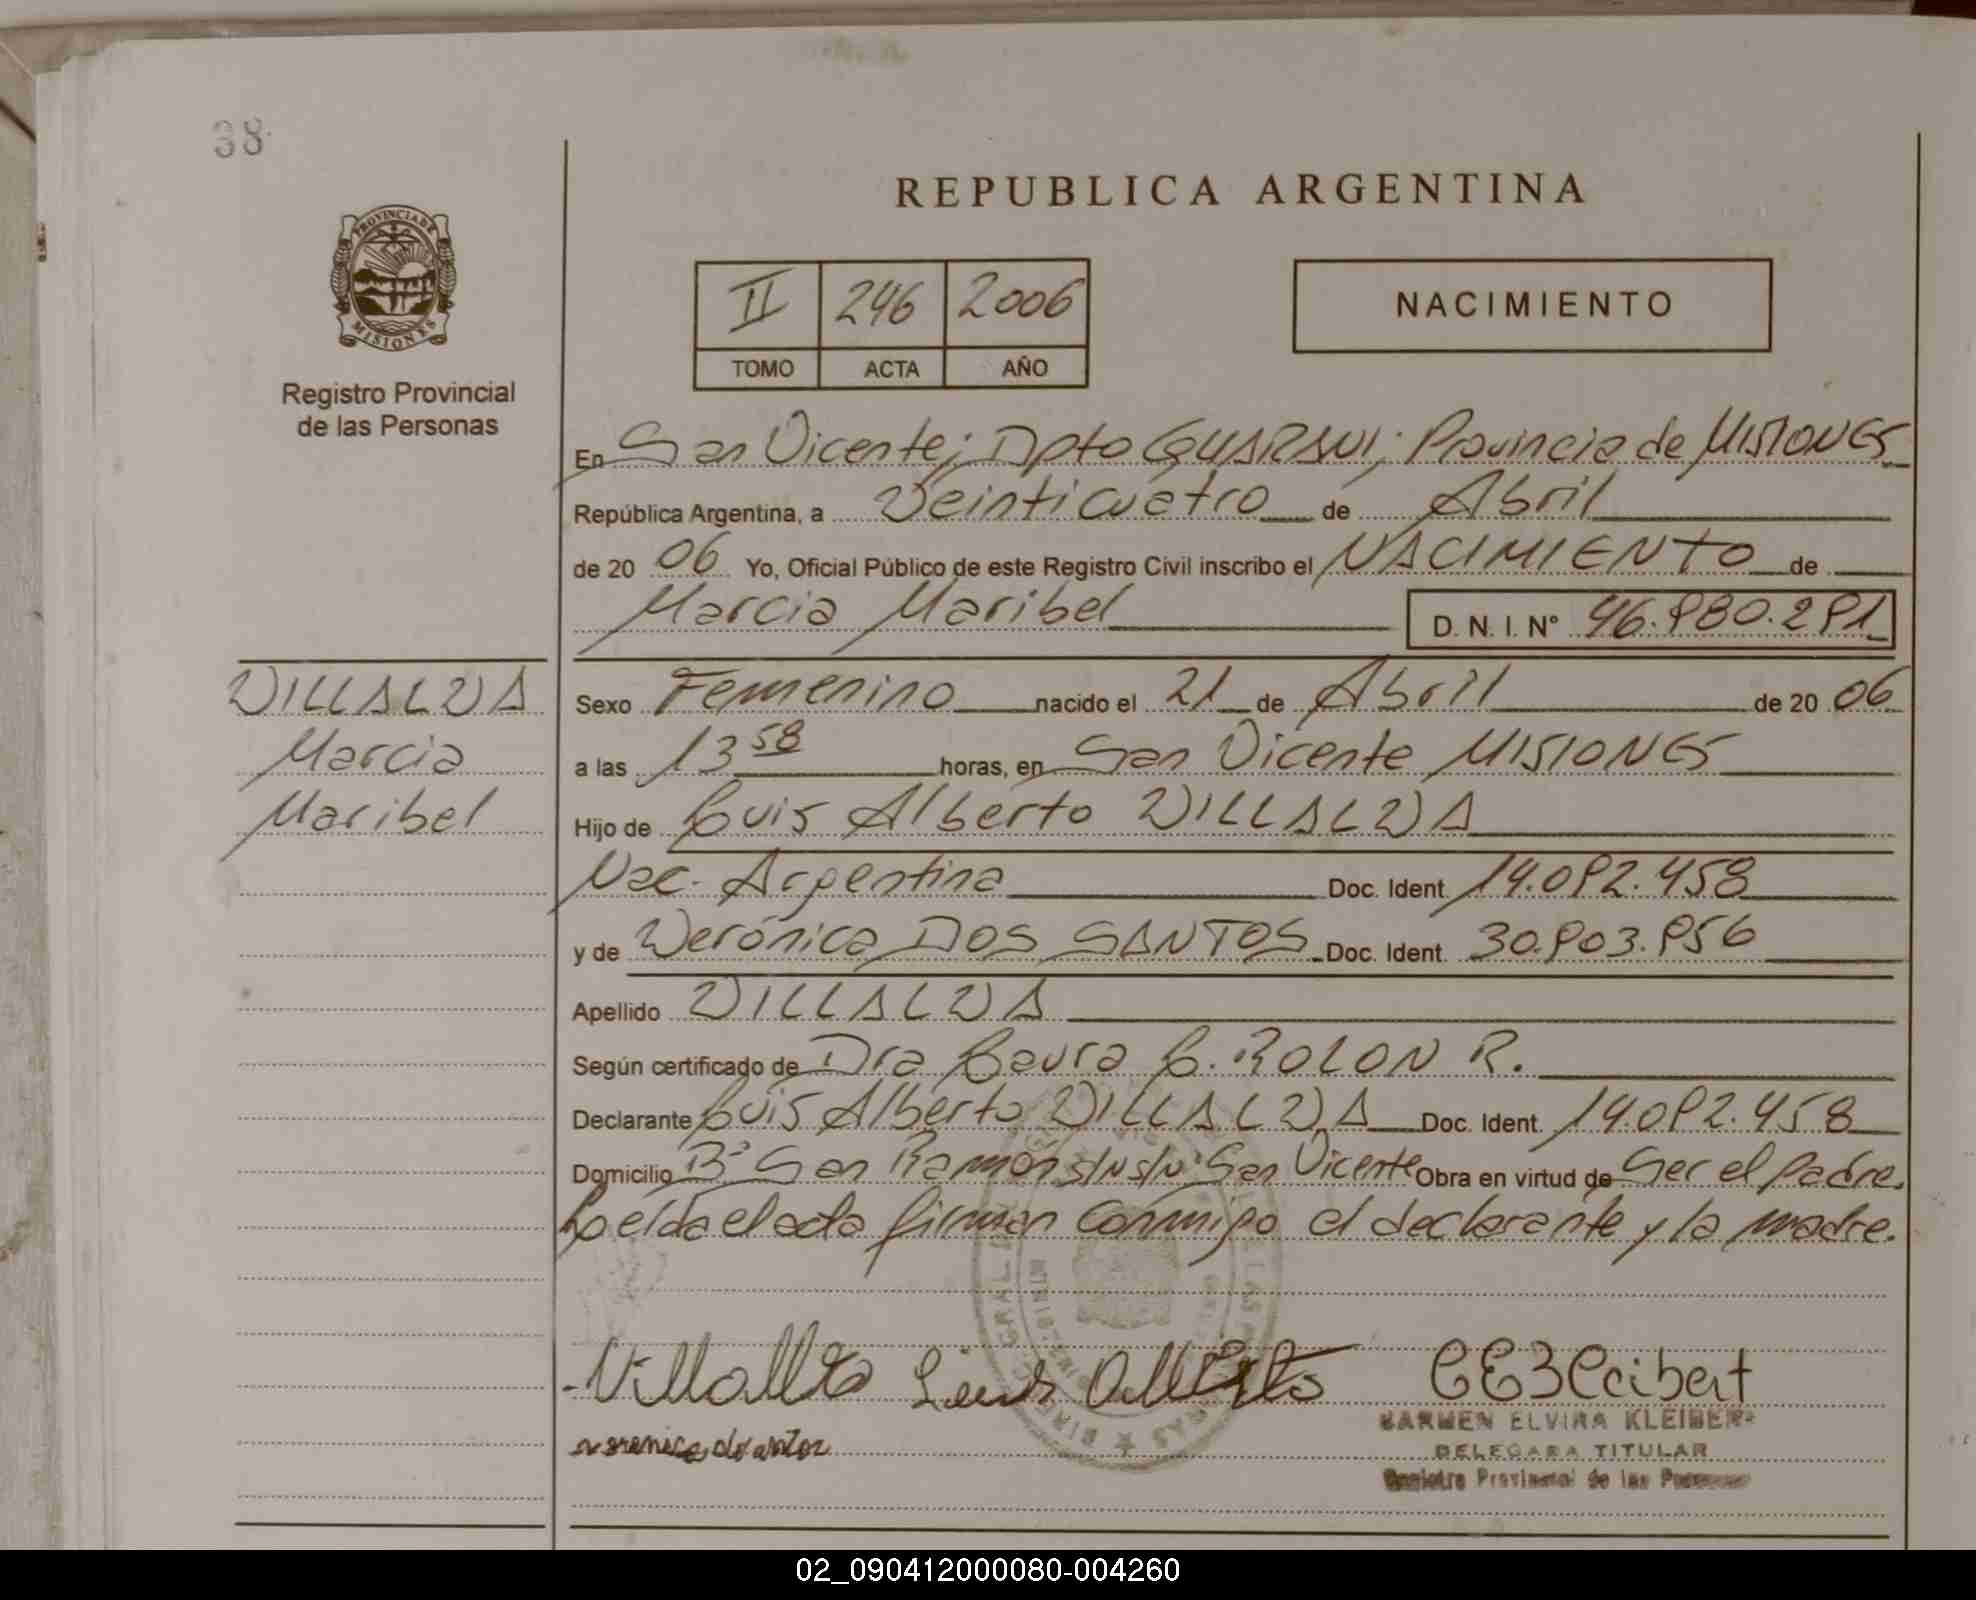 38
PROVINCIA DE
MISIONES
Registro Provincial
de las Personas
REPUBLICA ARGENTINA
II 246 2006
TOMO ACTA AÑO
NACIMIENTO
En San Vicente; Dpto GUARANI; Provincia de MISIONES
República Argentina, a Veinticuatro de Abril
de 20 06 Yo, Oficial Público de este Registro Civil inscribo el NACIMIENTO de
Marcia Maribel D. N. I. N° 46.980.291
VILLALVA
Marcia
Maribel
Sexo Femenino nacido el 21 de Abril de 20 06
a las 13 58 horas, en San Vicente MISIONES
Hijo de Luis Alberto VILLALVA
Nac. Argentina Doc. Ident. 14.092.458
y de Verónica DOS SANTOS Doc. Ident. 30.903.956
Apellido VILLALVA
Según certificado de Dra Laura L. ROLON R.
Declarante Luis Alberto VILLALVA Doc. Ident. 14.092.458
Domicilio B° San Ramón S/N S/N° San Vicente Obra en virtud de Ser el padre.
Leída el acta firman conmigo el declarante y la madre.
Villalba Luis Alberto
CARMEN ELVIRA KLEIBER
DELEGADA TITULAR
Registro Provincial de las Personas
02_090412000080-004260